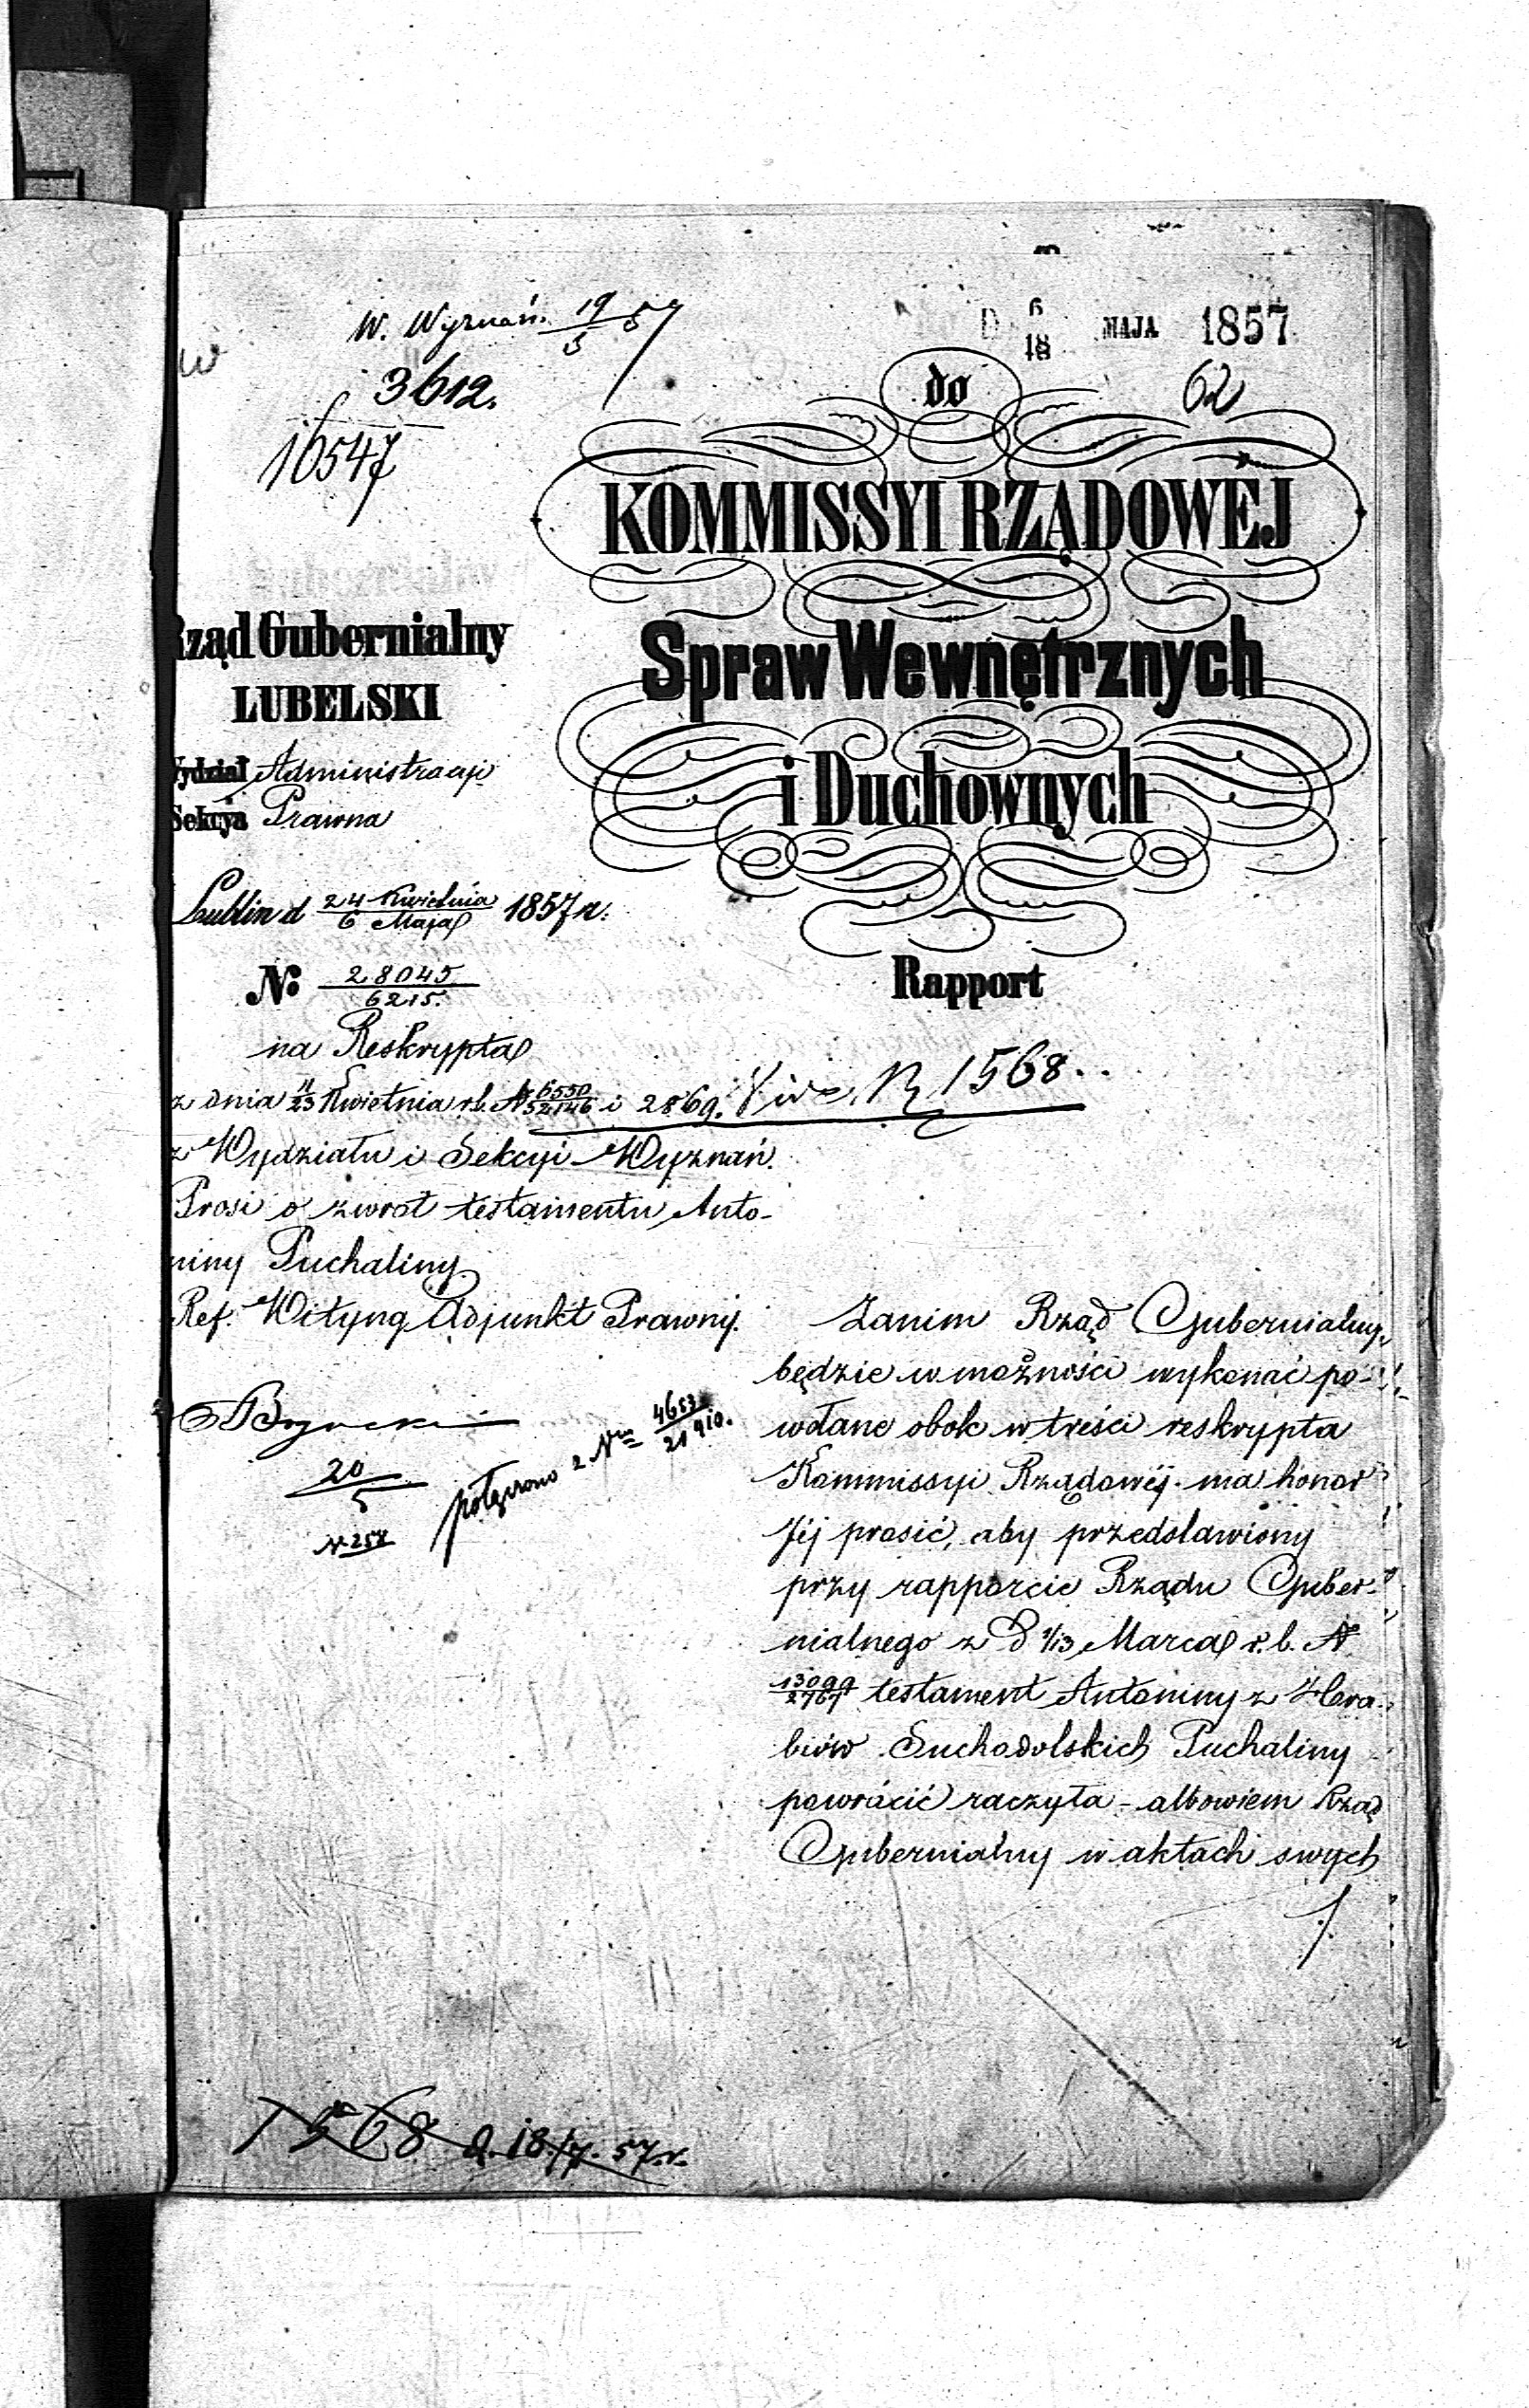 W. Wyznań. 19/5 57
3612.
16547
D 6/18 MAJA 1857
62
do
KOMMISSYI RZĄDOWÉJ
Spraw Wewnętrznych
i Duchownych
Rapport
Rząd Gubernialny
LUBELSKI
Wydział Administracyi
Sekcya Prawna
Lublin d 24 Kwietnia/6 Maja 1857 r.
No 28045/6215.
na Reskrypta
z dnia 11/23 Kwietnia r.b. N 6550/52146 i 2869. Vide N 1568.
z Wydziału i Sekcyi Wyznań.
Prosi o zwrot testamentu Anto-
niny Puchaliny
Ref. Wityng Adjunkt Prawny.
20/5
N. 258
połączono z Nrm 4653/21
Zanim Rząd Gubernialny
będzie w możności wykonać po-
wołane obok w treści reskrypta
Kommissyi Rządowéj ma honor
Jéj prosić, aby przedstawiony
przy rapporcie Rządu Guber-
nialnego z d 1/13 Marca r.b. N
13099/2767 testament Antoniny z Hra-
biów Suchodolskich Puchaliny
powrócić raczyła – albowiem Rząd
Gubernialny w aktach swych
1568 d. 18/7. 57.r.